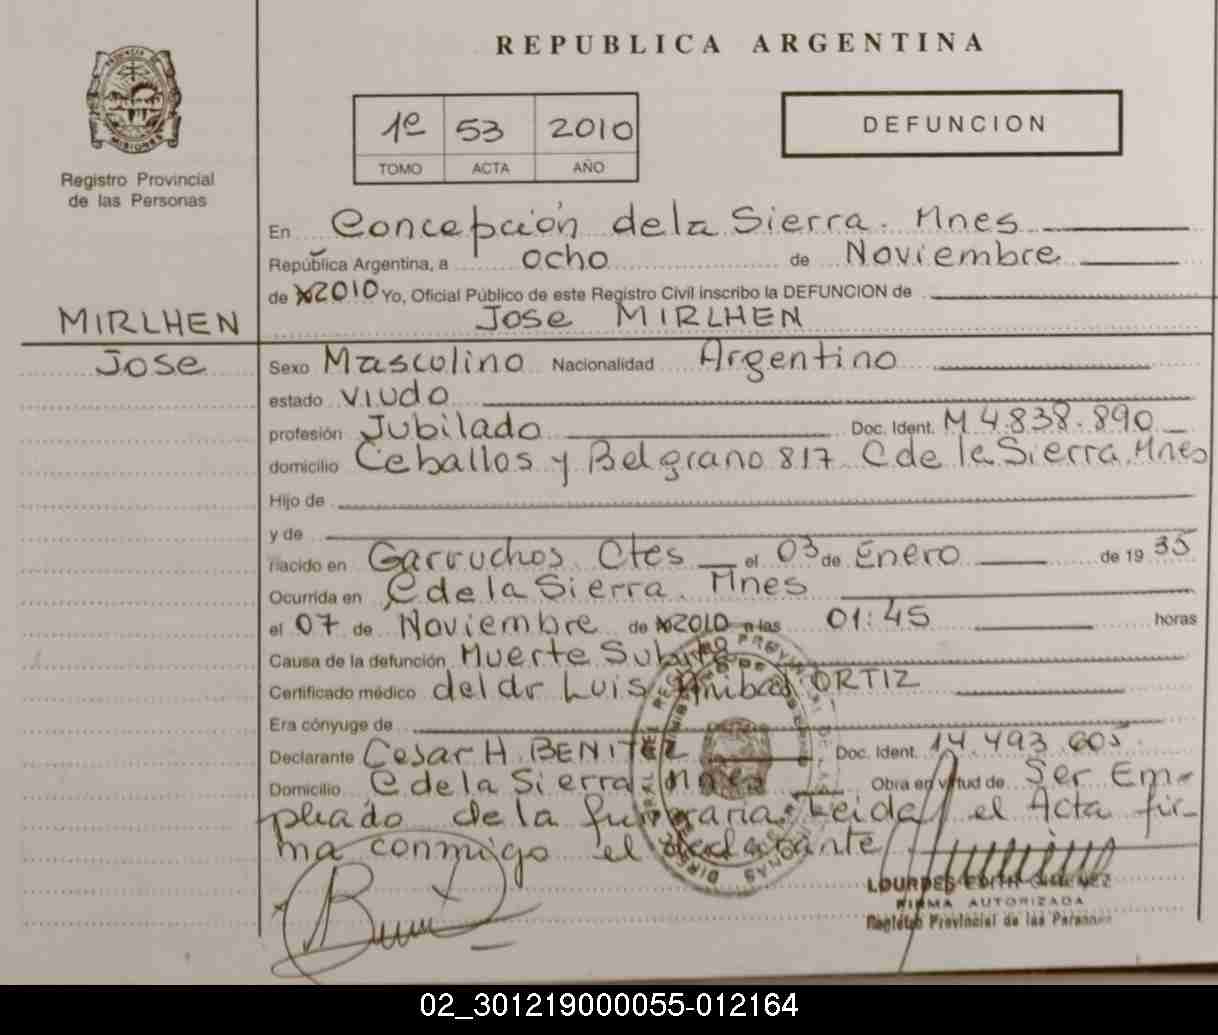 REPUBLICA ARGENTINA
1º 53 2010
TOMO ACTA AÑO
DEFUNCION
MISIONES
Registro Provincial
de las Personas
En Concepción de la Sierra. Mnes
República Argentina, a ocho de Noviembre
de 2010 Yo, Oficial Público de este Registro Civil inscribo la DEFUNCION de
MIRLHEN
Jose MIRLHEN
Jose
Sexo Masculino Nacionalidad Argentino
estado viudo
profesión Jubilado Doc. Ident. M 4.838.890
domicilio Ceballos y Belgrano 817 C de la Sierra, Mnes
Hijo de
y de
nacido en Garruchos Ctes el 03 de Enero de 19 35
Ocurrida en C de la Sierra. Mnes
el 07 de Noviembre de 2010 a las 01:45 horas
Causa de la defunción Muerte Subita
Certificado médico del dr Luis Anibal ORTIZ
Era cónyuge de
Declarante Cesar H. BENITEZ Doc. Ident. 14.493.605
Domicilio C de la Sierra Mnes Obra en virtud de Ser Em-
pleado de la funeraria. Leida el Acta fir-
ma conmigo el declarante
LOURDES EDITH GIMENEZ
FIRMA AUTORIZADA
Registro Provincial de las Personas
02_301219000055-012164